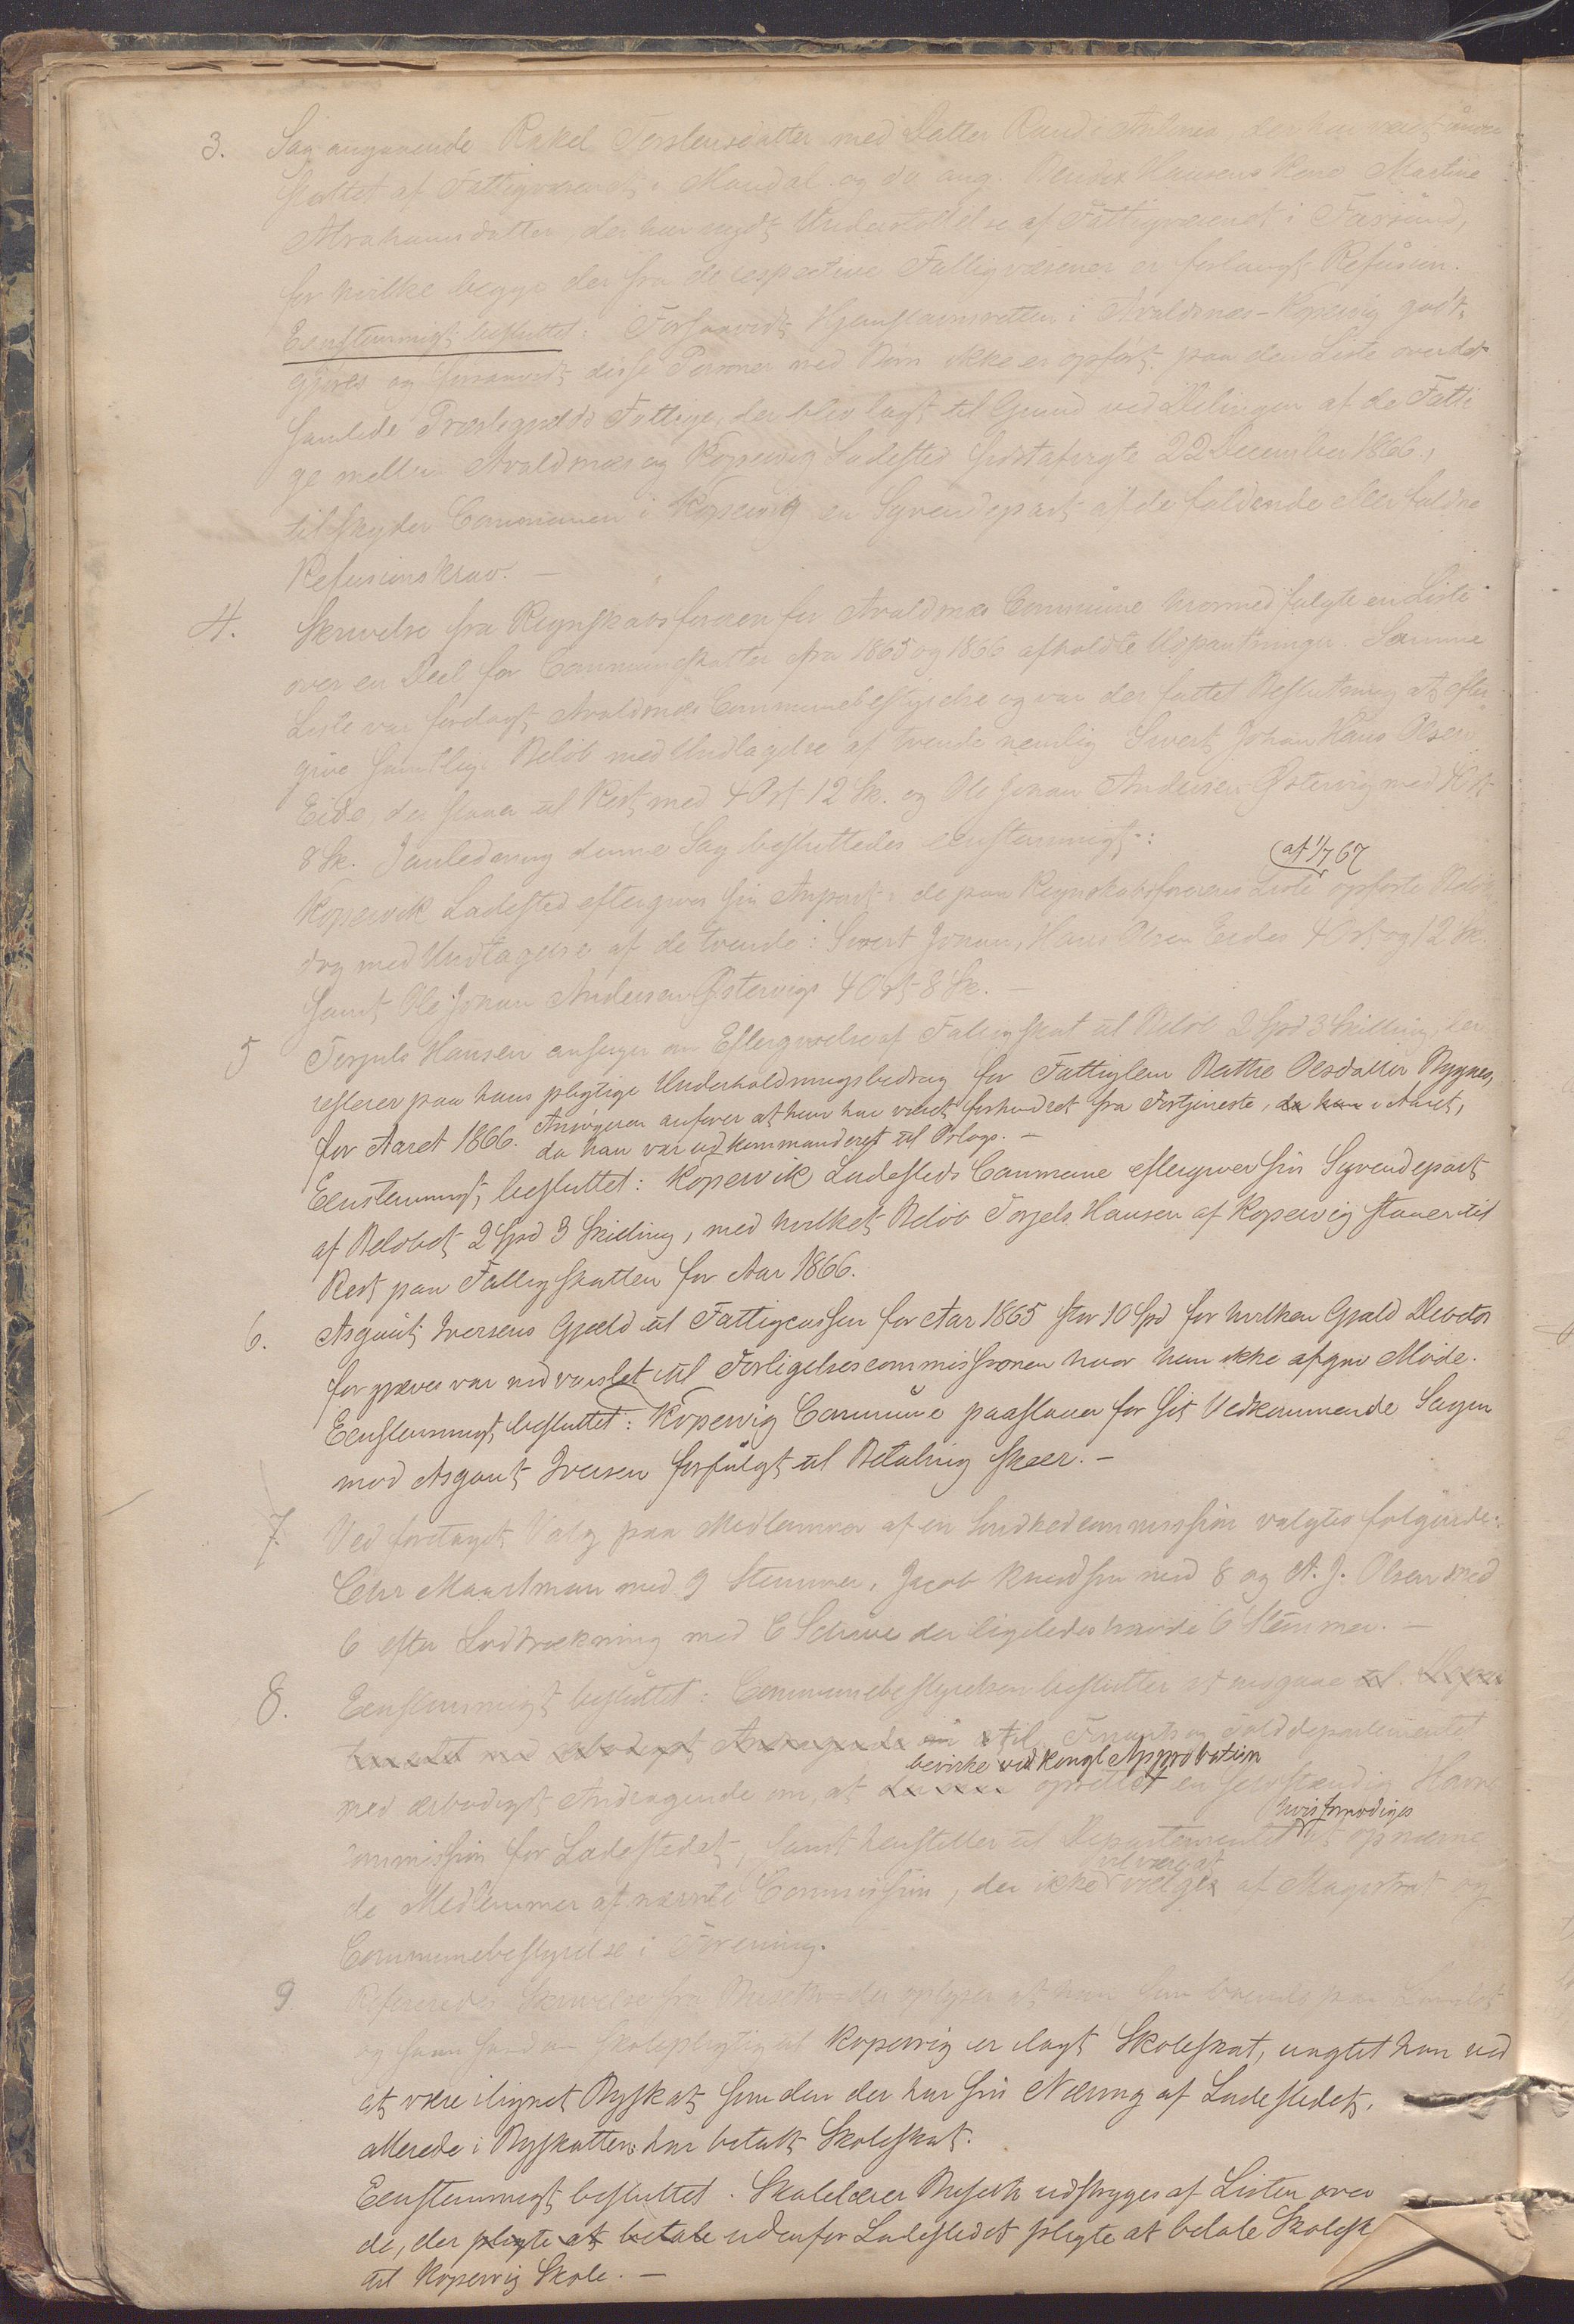 3. Sag angaaende Rakel Torstensdatter med Datter Randi Antonia der har været under
støttet af Fattigvæsenet i Mandal og do ang. Bendix Hansens Kone Martine
Abrahamsdatter, der har nydt Understøttelse af Fattigvæsenet i Farsund,
for hvilke begge der fra de respective Fattigvæsener er forlangt Refusion.
Eenstemmigt besluttet: Forsaavidt Hjemstavnsretten i Avaldsnæs-Kopervig godt-
gjøres og forsaavidt disse Personer med Børn ikke er opført paa den Liste over det
samlede Præstegjelds Fattige, der blev lagt til Grund ved Delingen af de Fatti
ge mellem Avaldsnæs og Kopervig Ladested sidstafvigte 22 December 1866,
tilskyder Communen i Kopervig en Syvendepart af de faldende eller faldne
Refusionskrav. —
4. Skrivelse fra Regnskabsføreren for Avaldsnæs Commune hvormed fulgte en Liste
over en Deel for Communeskatter fra 1865 og 1866 afholdte Udpantninger. Samme
Liste var forelagt Avaldsnæs Communebestyrelse og var der fattet Beslutning at efter
give samtlige Beløb med Undtagelse af tvende nemlig Sivert Johan Hans Olsen
Eide, der staaer til Rest med 4 Ort 12 Sk. og Ole Johan Andersen Østervig med 4 Ort
8 Sk. I Anledning denne Sag besluttedes eenstemmigt:
af 1/7 67
Kopervik Ladested eftergiver sin Anpart i de paa Regnskabsførerens Liste opførte Beløb
dog med Undtagelse af de tvende: Sivert Johan, Hans Olsen Eides 4 Ort og 12 Sk.
samt Ole Johan Andersen Østervigs 4 Ort 8 Sk. —
5 Torjuls Hansen ansøger om Eftergivelse af Fattigskat til Beløb 2 Spd 3 Skilling her
resterer paa hans pligtige Underholdningsbidrag for Fattiglem Berthe Olsdatter Bygnes,
for Aaret 1866. Ansøgeren anfører at han har været forhindret fra Fortjeneste, da han i Aaret,
da han var udkommanderet til Orlogs. —
Eenstemmigt besluttet: Kopervik Ladesteds Commune eftergiver sin Syvendepart
af Beløbet 2 Spd 3 Skilling, med hvilket Beløb Torjels Hansen af Kopervig staaer til
Rest paa Fattigskatten for Aar 1866.
6. Asgaut Iversens Gjæld til Fattigcassen for Aar 1865 stor 10 Spd for hvilken Gjæld Debitor
forgjæves var indvarslet til Forligelsescommissionen hvor han ikke afgav Møde.
Eenstemmigt besluttet: Kopervig Commune paastaaer for sit Vedkommende Sagen
mod Asgaut Iversen forfulgt til Betaling skeer. —
7. Ved foretaget Valg paa Medlemmer af en Sundhedcommission valgtes følgende:
Chr Maartman med 9 Stemmer, Jacob Knudsen med 8 og A. J. Olsen med
6 efter Lodtrækning med E Schive der ligeledes havde 6 Stemmer. —
8. Eenstemmigt besluttet: Communebestyrelsen beslutter at indgaae til
med ærbødigst Andragende om til Finants og Tolddepartementet
bevirke ved kongl Approbation
med ærbødigst Andragende om, at oprettet en selvstændig Havne
hvis formodiges
commission for Ladestedet, samt henstiller til Departementet at opnævne
vil være at
de Medlemmer af nævnte Commission, der ikke vælges af Magistrat og
Communebestyrelse i Forening.
9 Refereredes Skrivelse fra Buseth der oplyser at han som boende paa Landet
og som saadan skolepligtig til Kopervig er ilagt Skoleskat, uagtet han ved
at være ilignet Byskat som den der har sin Næring af Ladestedet,
allerede i Byskatten har betalt Skoleskat.
Eenstemmigt besluttet. Skolelærer Buseth udstryges af Listen over
de, der pligte at betale udenfor Ladestedet pligte at betale Skolesk
til Kopervig Skole. —